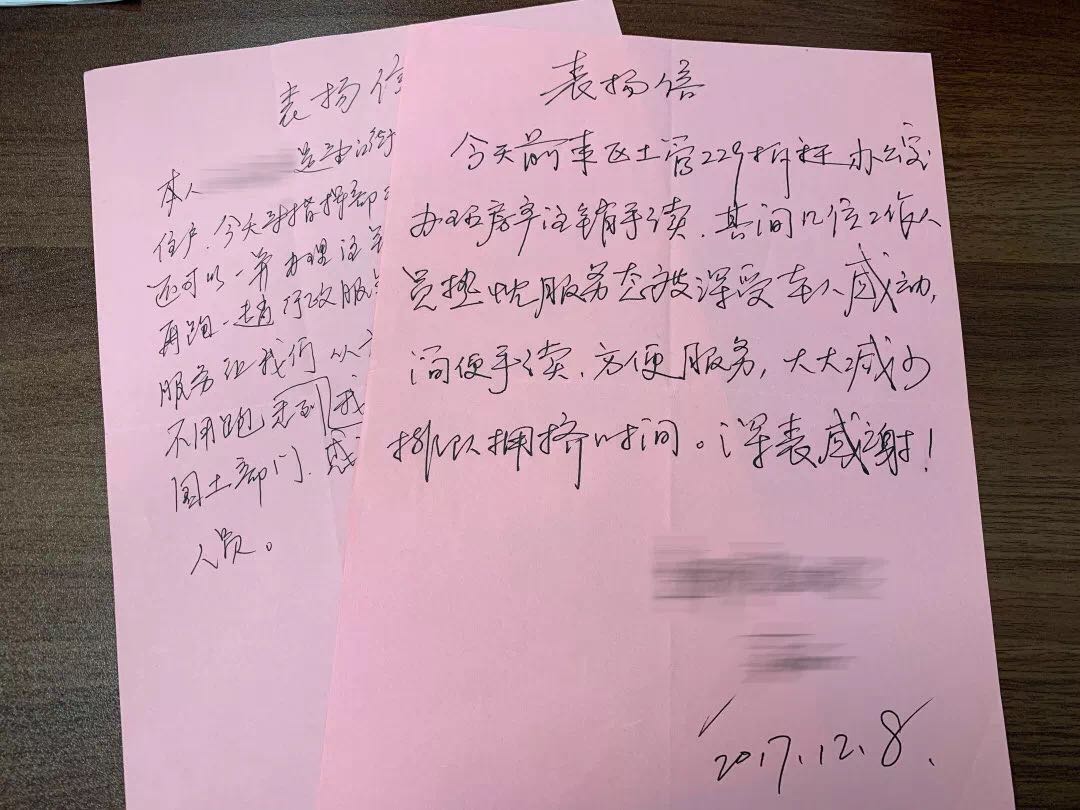 表扬信
本人
是
街
住户.今天
指挥部
还可以一并办理注
再跑一趟行政服
服务让我们从
不用跑
我
国土部门.感
人员。
表扬信
今天前来区土管229拆迁办公室
办理房产注销手续.其间几位工作人
员热忱服务态度深受本人感动,
简便手续.方便服务,大大减少
排队拥挤时间。深表感謝!
2017.12.8.